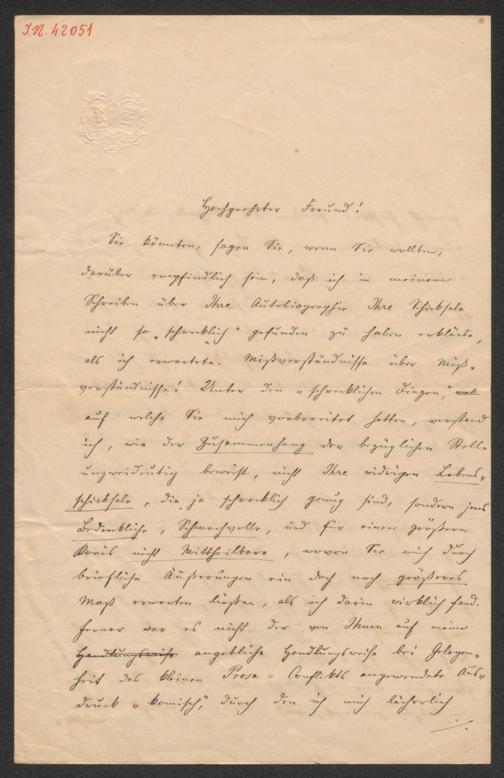 I.N. 42051
Hochgeehrter Freund!
Sie könnten, sagen Sie, wenn Sie wollten,
darüber empfindlich sein, daß ich in meinem
Schreiben über Ihre Autobiographie Ihre Schicksale
nicht so „schrecklich“ gefunden zu haben erklärte,
als ich erwartete. Mißverständnisse über Miß-
verständnisse! Unter den „schrecklichen Dingen,“
auf welche Sie mich vorbereitet hatten, verstand
ich, wie der Zusammenhang der bezüglichen Stelle
unzweideutig beweist, nicht Ihre widrigen Lebens-
schicksale, die ja schrecklich genug sind, sondern jenes
Bedenkliche, Schmachvolle, und für einen größeren
Kreis nicht Mittheilbare, wovon Sie mich durch
briefliche Äußerungen ein doch noch größeres
Maß erwarten ließen, als ich darin wirklich fand.
Ferner war es nicht der von Ihnen auf meine
Handlungsweise angebliche Handlungsweise bei Gelegen-
heit des kleinen Prosa-Conflikts angewendete Aus-
druck „komisch,“ durch den ich mich lächerlich